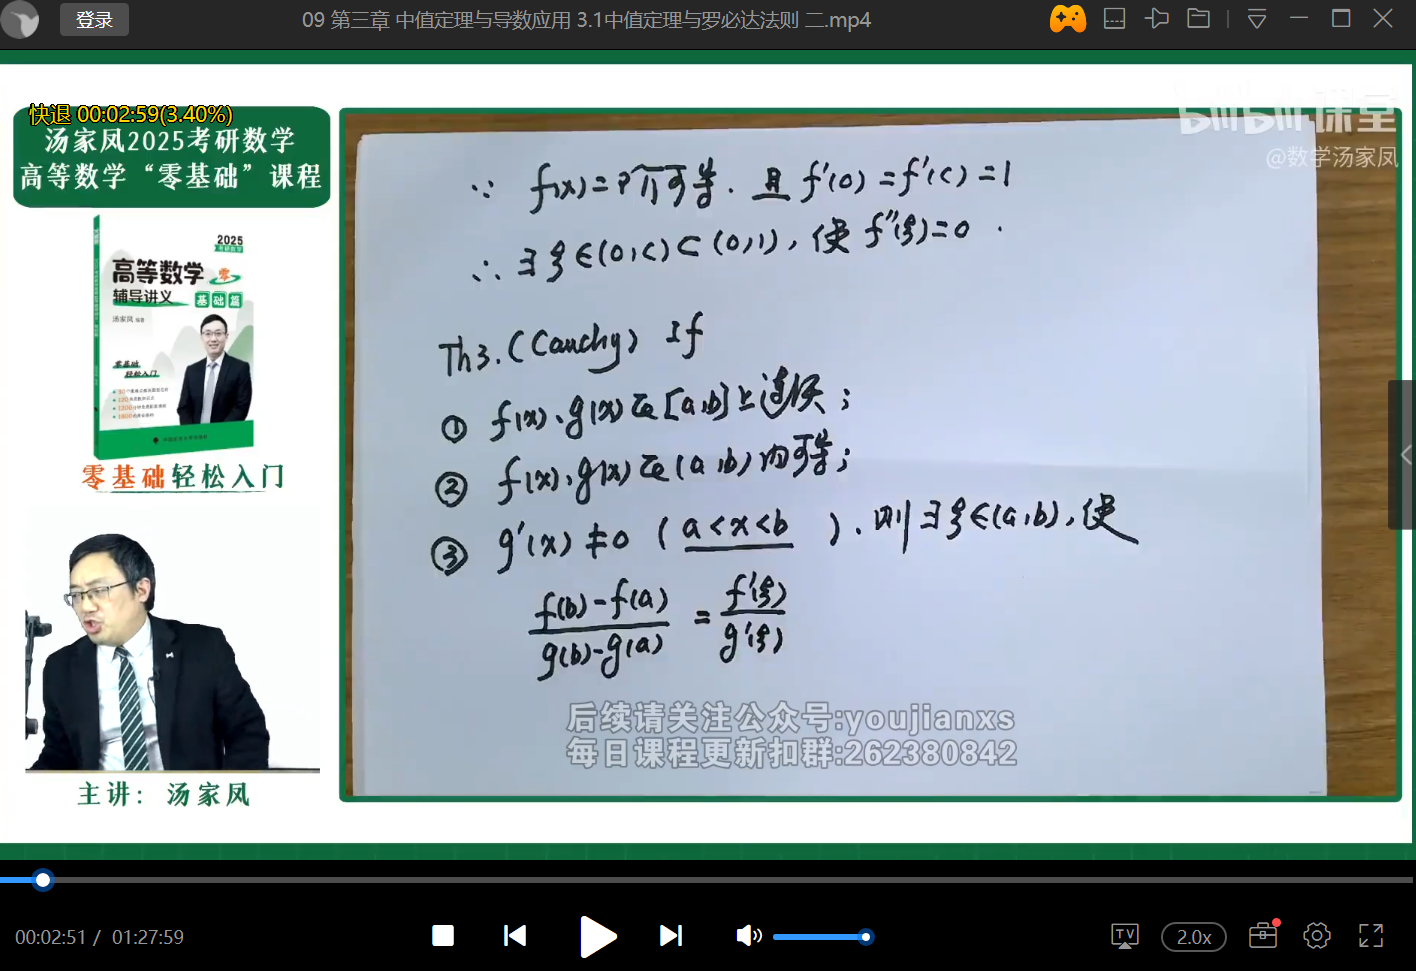 登录
09 第三章 中值定理与导数应用 3.1中值定理与罗必达法则 二.mp4
快退 00:02:59(3.40%)
汤家凤2025考研数学
高等数学“零基础”课程
2025
高等数学 零
辅导讲义 基础篇
汤家凤 编著
零基础
轻松入门
零基础轻松入门
主讲: 汤家凤
bilibili课堂
@数学汤家凤
∵ f(x)=阶可导. 且 f'(0)=f'(c)=1
∴ ∃ξ∈(0,c)⊂(0,1), 使 f''(ξ)=0.
Th3.(Cauchy) If
① f(x)、g(x)在[a,b]上连续;
② f(x)、g(x)在(a,b)内可导;
③ g'(x)≠0 (a<x<b). 则∃ξ∈(a,b),使
f(b)-f(a) / g(b)-g(a) = f'(ξ) / g'(ξ)
后续请关注公众号:youjianxs
每日课程更新扣群:262380842
00:02:51 / 01:27:59
TV
2.0x